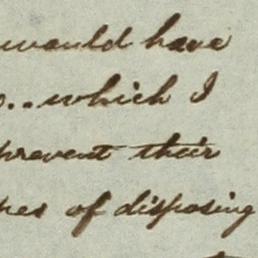 would have
which I
prevent their
of disposing